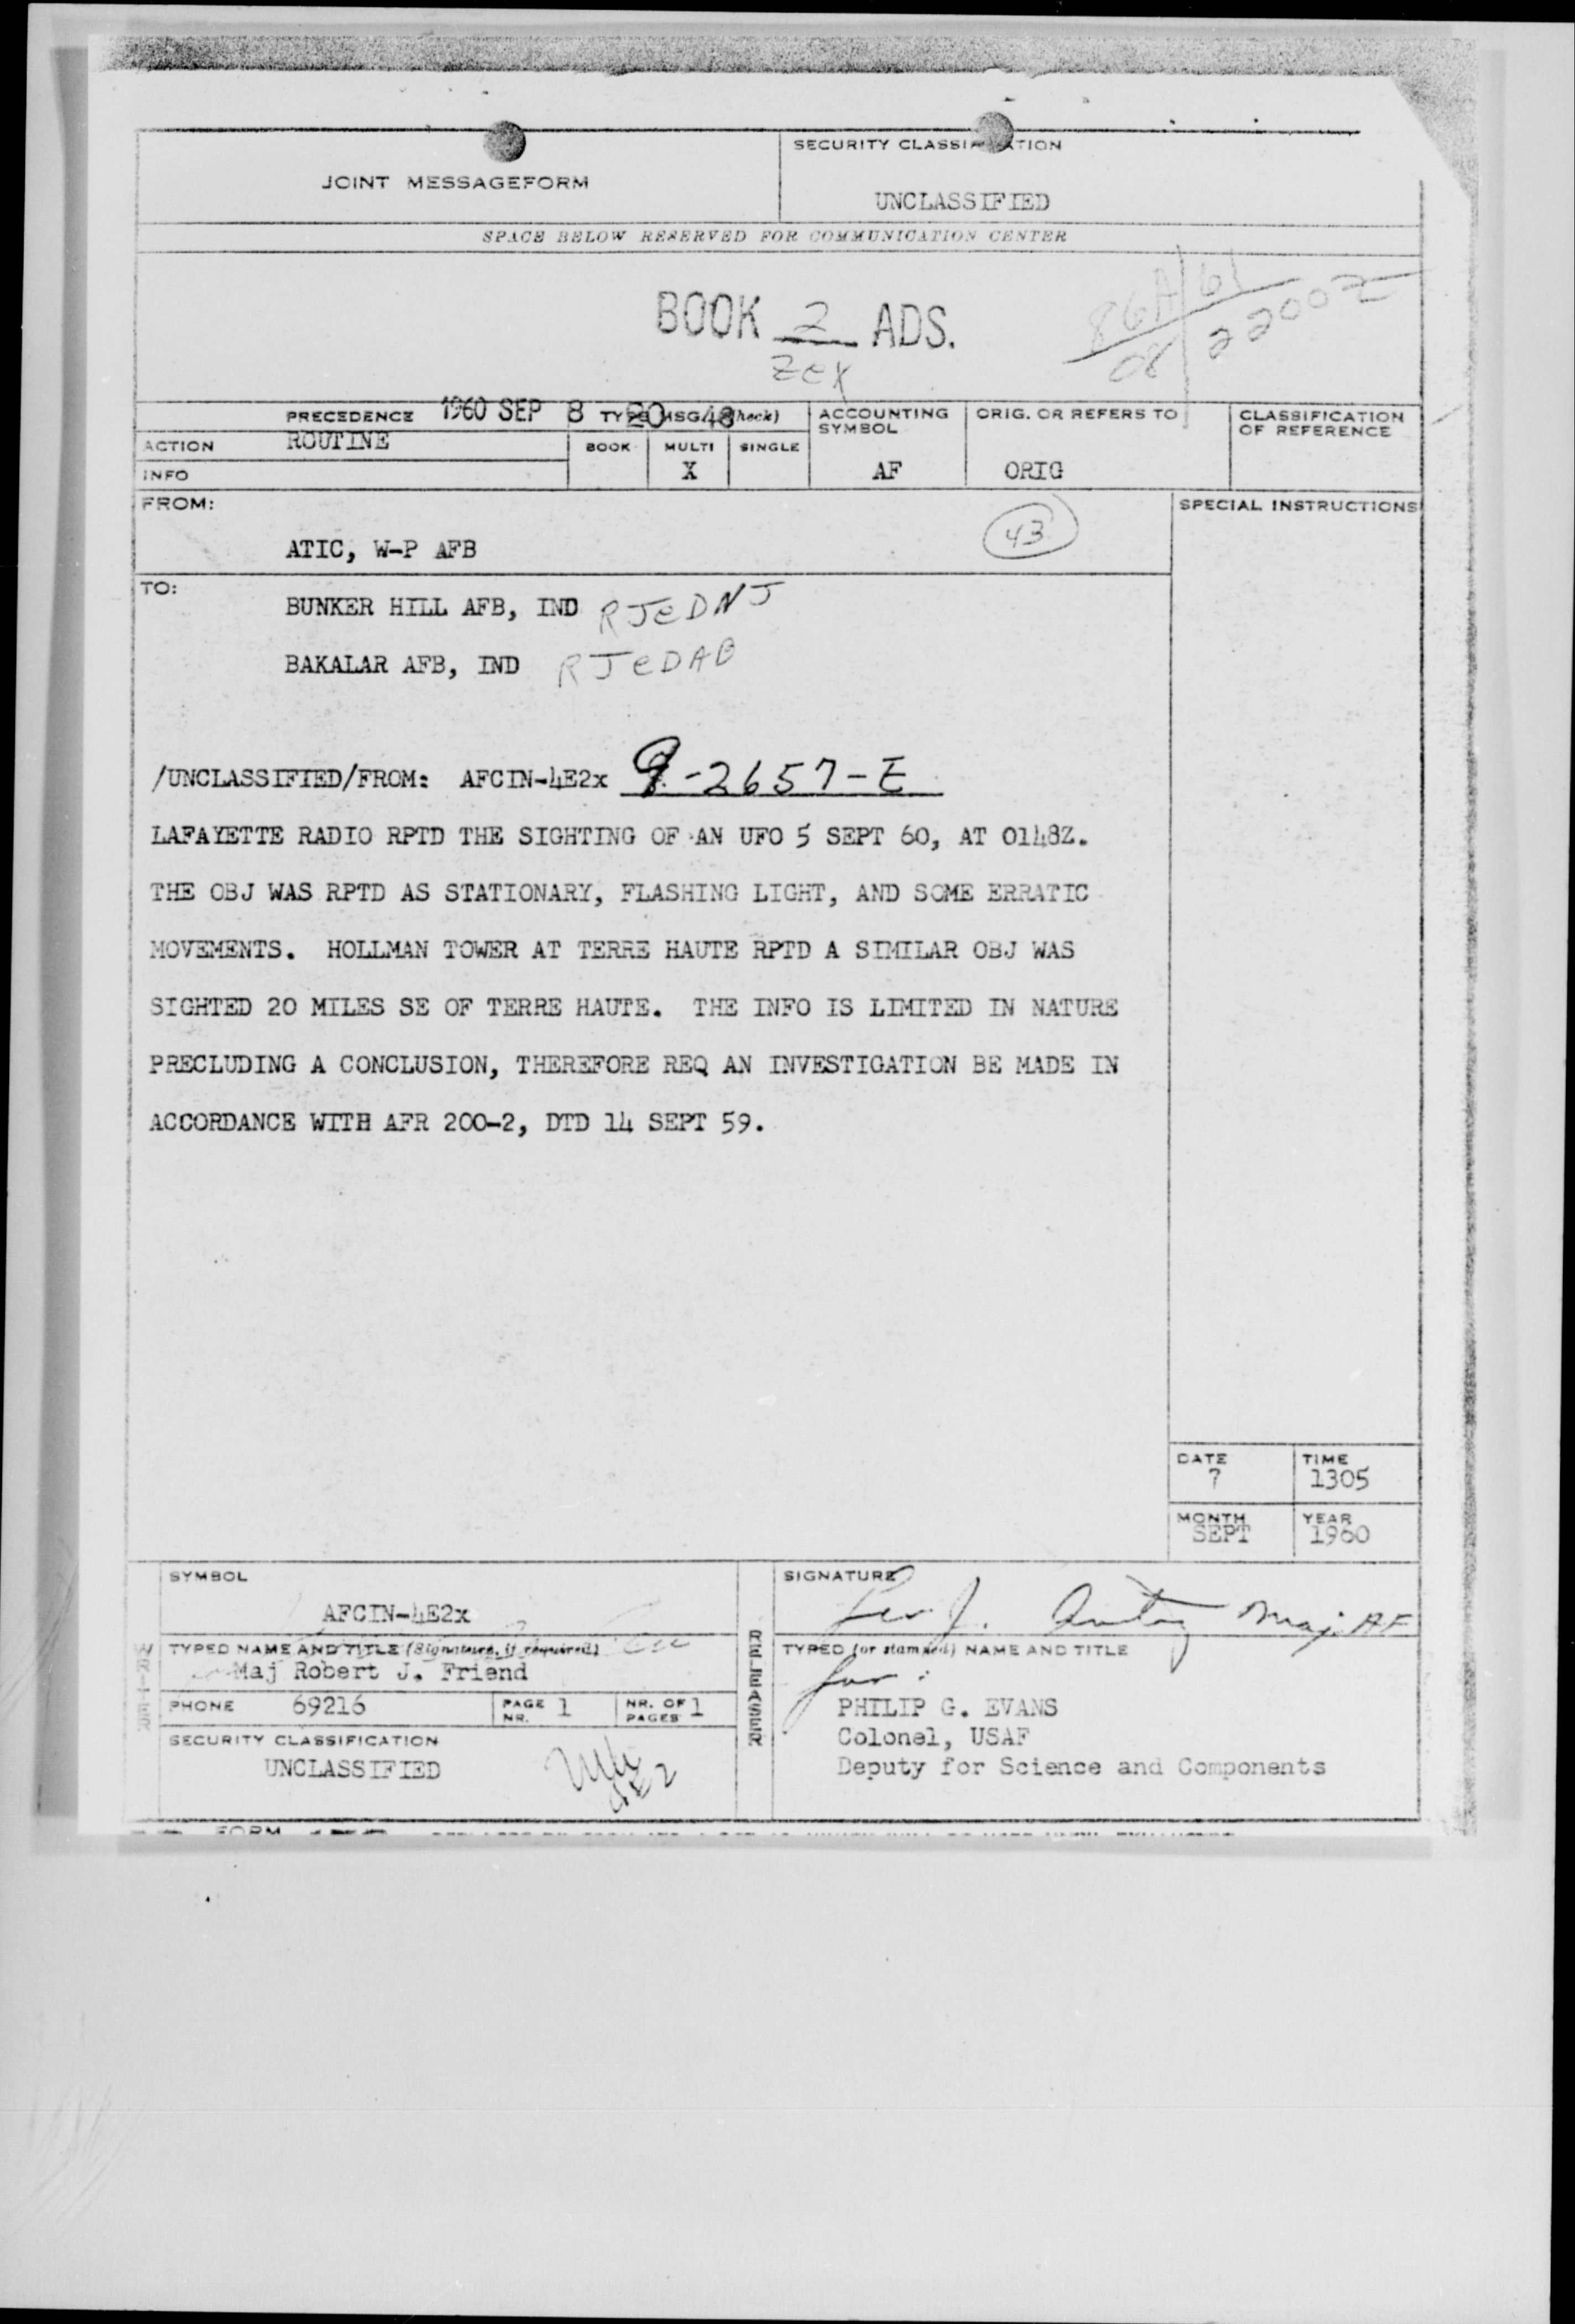 JOINT MESSAGEFORM
SECURITY CLASSIFICATION
UNCLASSIFIED
SPACE BELOW RESERVED FOR COMMUNICATION CENTER
BOOK 2 ADS.
ZEX
86A/61
08/2200Z
PRECEDENCE
1960 SEP 8 20 48
TYPE MSG (Check)
ACCOUNTING SYMBOL
ORIG. OR REFERS TO
CLASSIFICATION OF REFERENCE
ACTION
ROUTINE
BOOK
MULTI
SINGLE
INFO
X
AF
ORIG
FROM:
SPECIAL INSTRUCTIONS
ATIC, W-P AFB
43
TO:
BUNKER HILL AFB, IND RJEDNJ
BAKALAR AFB, IND RJEDAB
/UNCLASSIFIED/FROM: AFCIN-4E2x 9-2657-E
LAFAYETTE RADIO RPTD THE SIGHTING OF AN UFO 5 SEPT 60, AT 0148Z.
THE OBJ WAS RPTD AS STATIONARY, FLASHING LIGHT, AND SOME ERRATIC
MOVEMENTS. HOLLMAN TOWER AT TERRE HAUTE RPTD A SIMILAR OBJ WAS
SIGHTED 20 MILES SE OF TERRE HAUTE. THE INFO IS LIMITED IN NATURE
PRECLUDING A CONCLUSION, THEREFORE REQ AN INVESTIGATION BE MADE IN
ACCORDANCE WITH AFR 200-2, DTD 14 SEPT 59.
DATE
7
TIME
1305
MONTH
SEPT
YEAR
1960
WRITER
SYMBOL
AFCIN-4E2x
TYPED NAME AND TITLE (Signature, if required)
Maj Robert J. Friend
PHONE 69216
PAGE NR. 1
NR. OF PAGES 1
SECURITY CLASSIFICATION
UNCLASSIFIED
4E2
RELEASER
SIGNATURE
Maj. AF
TYPED (or stamped) NAME AND TITLE
for:
PHILIP G. EVANS
Colonel, USAF
Deputy for Science and Components
FORM